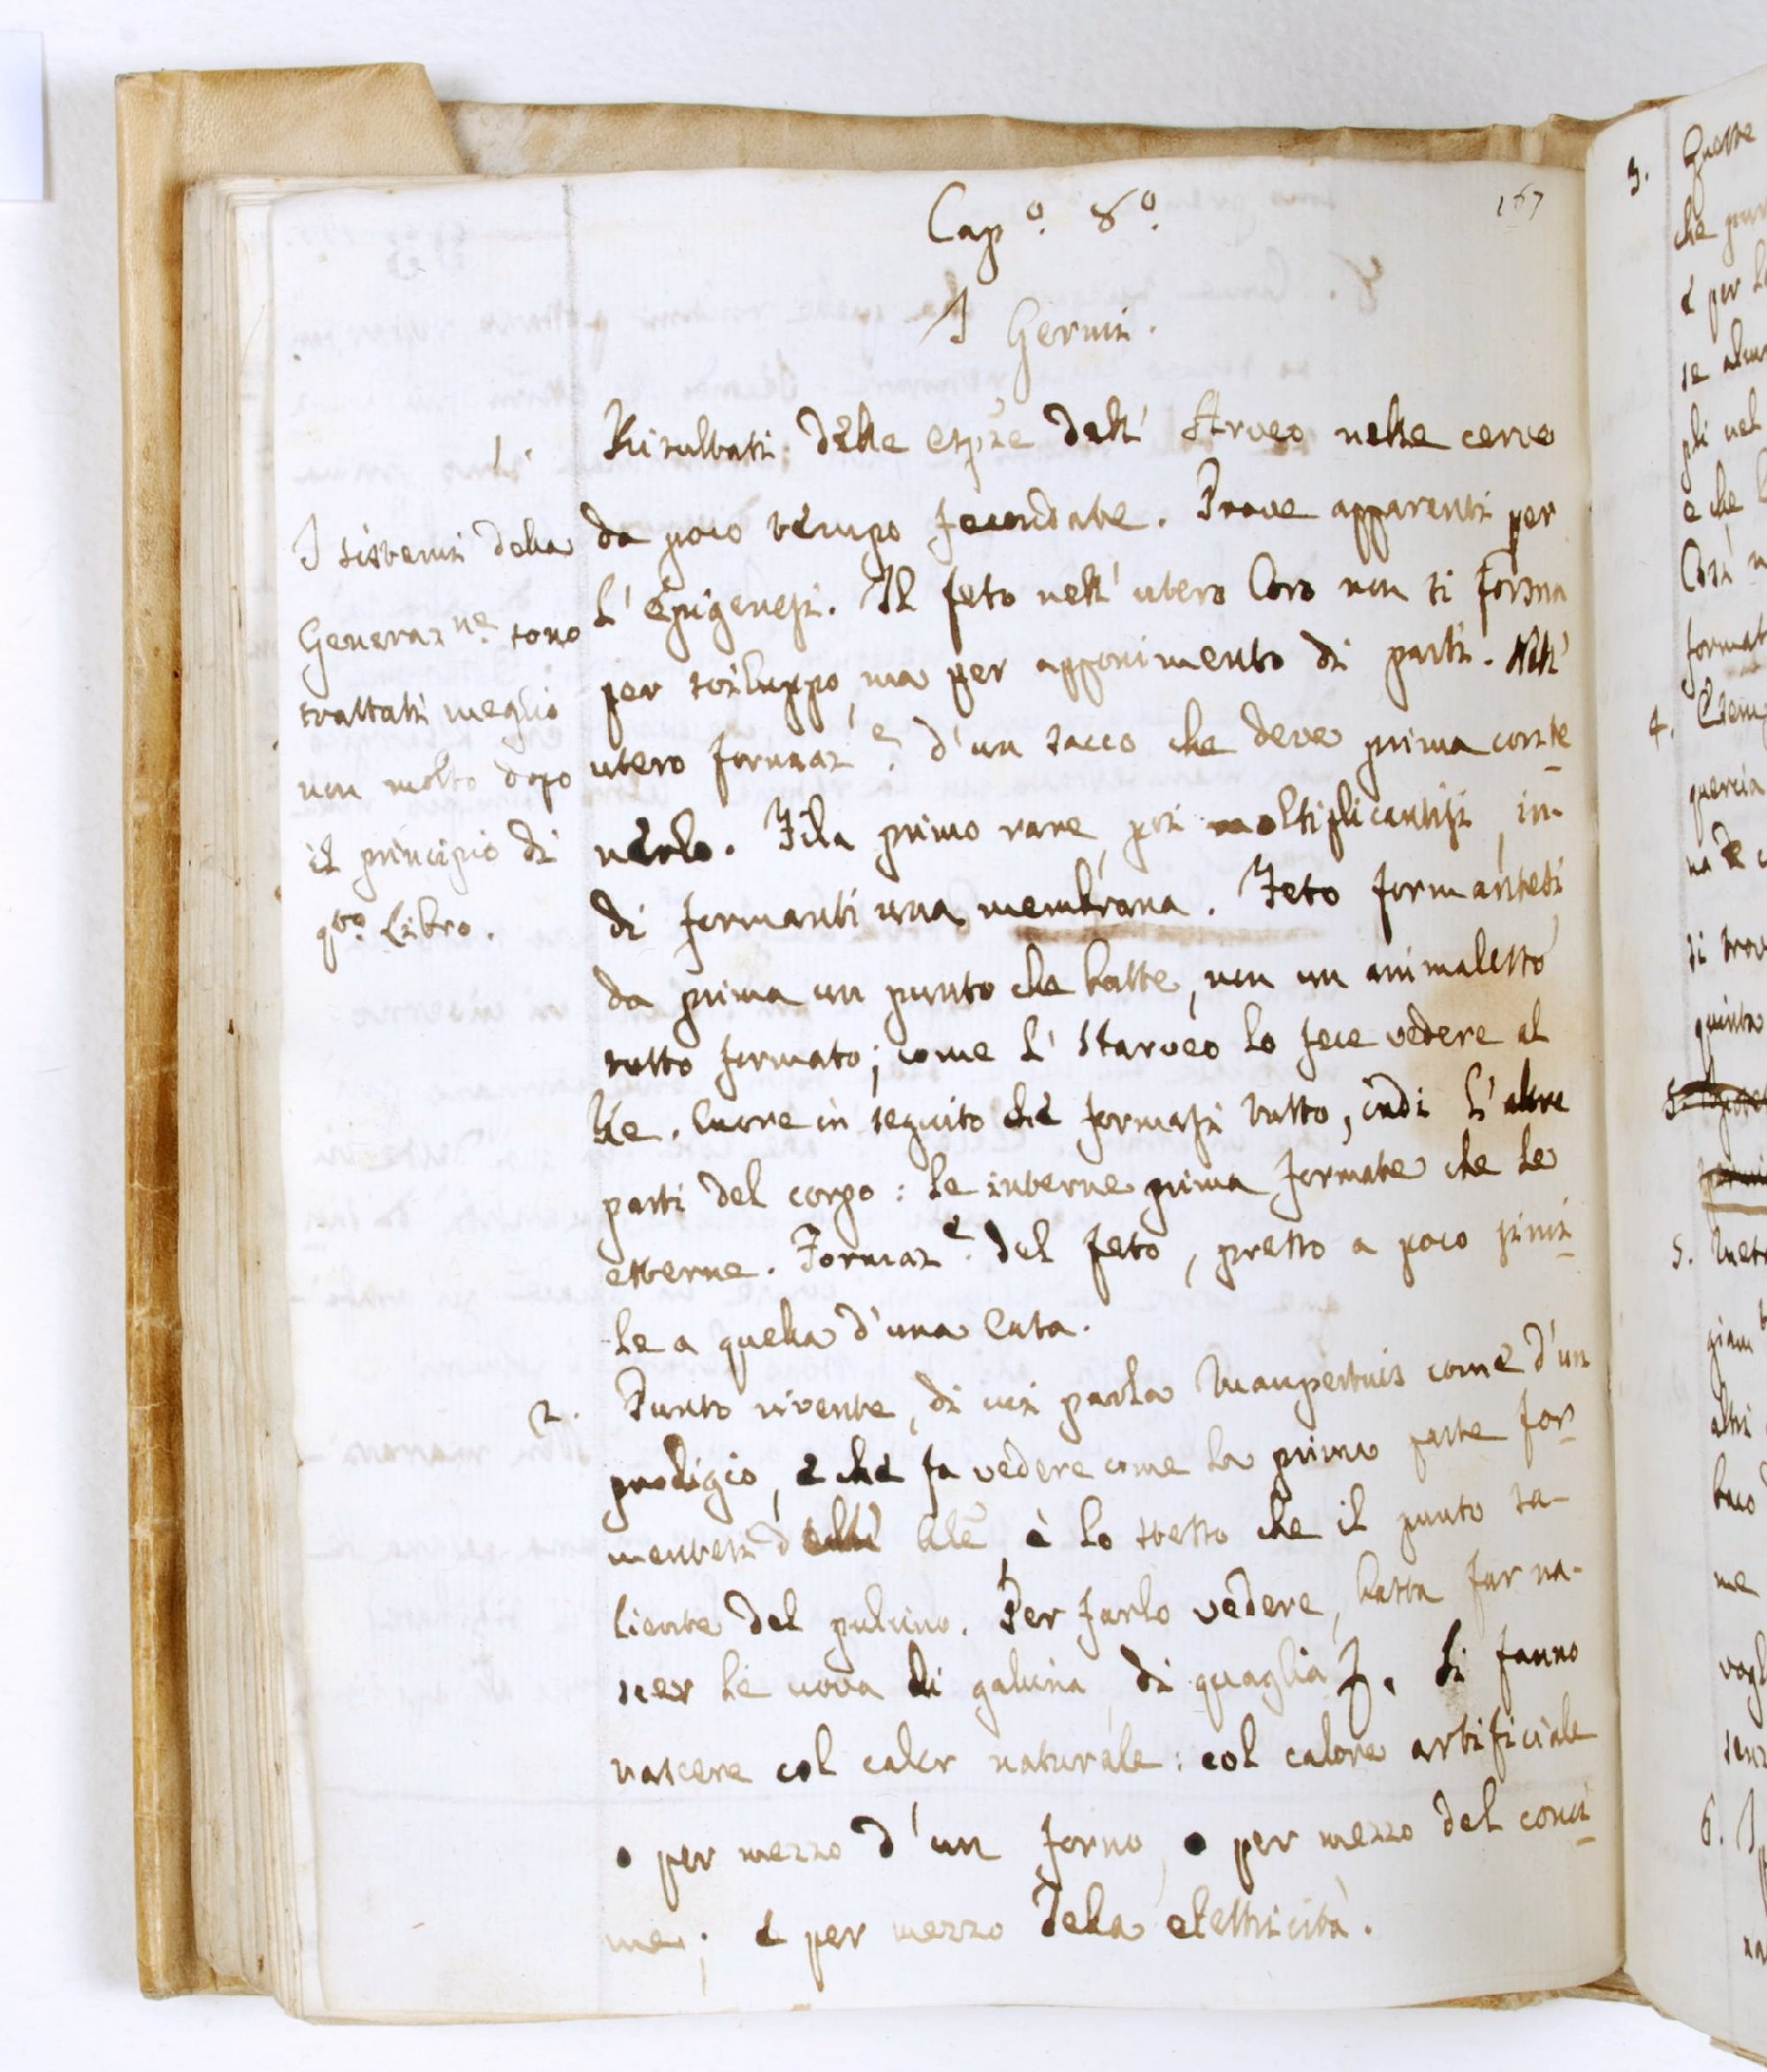 167
Cap.º 8.º
I Germi.
1. Risultati delle espze dell' Arveo nelle cerve
da poco tempo fecondate. Prove apparenti per
l'epigenesi. Il feto nell' utero loro non si forma
per sviluppo, ma per apponimento di parti. Nell'
utero formaz.e d'un sacco che deve prima conte
nerlo. Fila prima rare, poi moltiplicantisi, in-
di formanti una membrana. Feto formantesi
da prima un punto che batte, non un animaletto
tutto formato; come l' Harveo lo fece vedere al
Re. Cuore in seguito che formasi tutto, indi l'altre
parti del corpo: le interne prima formate che le
esterne. Formaz.e del feto, presso a poco simi
le a quella d'una
2. Punto vivente, di cui parla Maupertuis come d'un
prodigio, e che fa vedere come la prima parte for
mentesi è lo stesso che il punto sa-
liente del pulcino. Per farlo vedere, basta far na-
scer le uova di gallina, di quaglia Si fanno
nascere col calor naturale: col calore artificiale
o per mezzo d'un forno, o per mezzo del conci
me; e per mezzo della elettricità.
I sistemi della
Generaz.ne sono
trattati meglio
non molto dopo
il principio di
q.to Libro.
3. Queste
che
è per
se
gli nel
e che
Così
format
4.
quercia
na
si trov
quinta
5.
altri
me
vogl
6. I